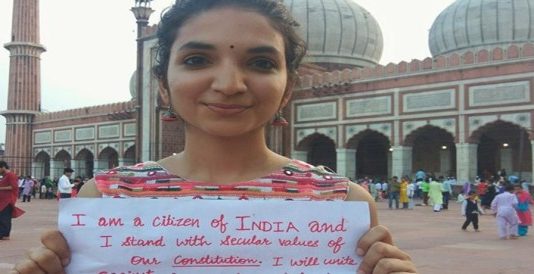 I am a citizen of INDIA and
I stand with secular values of
our Constitution. I will unite
against